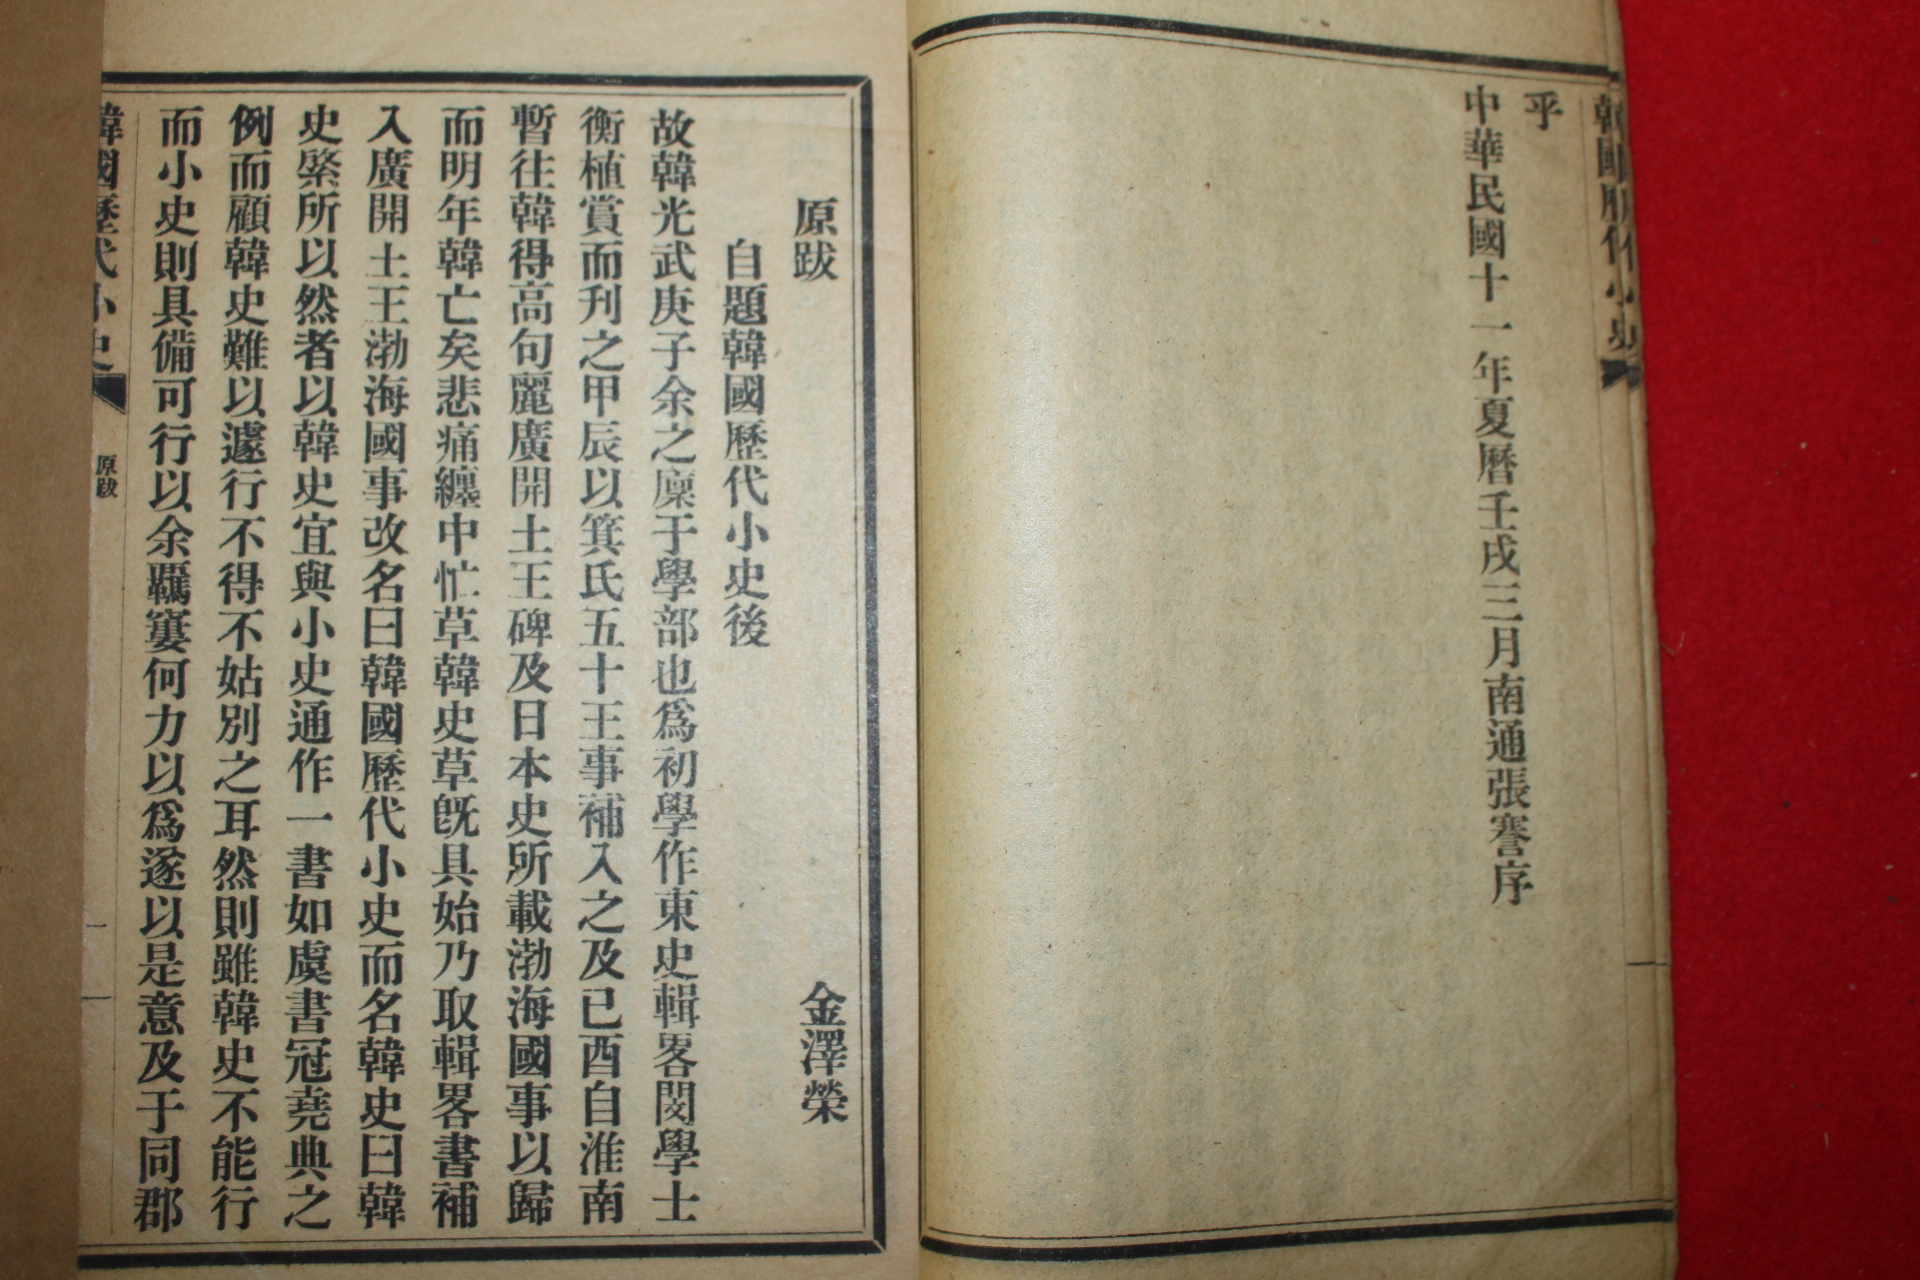 韓國歷代小史
乎
中華民國十一年夏曆壬戌三月南通張謇序
原跋
金澤榮
自題韓國歷代小史後
故韓光武庚子余之廩于學部也爲初學作東史輯畧閔學士
衡植賞而刋之甲辰以箕氏五十王事補入之及已酉自淮南
暫往韓得高句麗廣開土王碑及日本史所載渤海國事以歸
而明年韓亡矣悲痛纏中忙草韓史草旣具始乃取輯畧書補
入廣開土王渤海國事改名曰韓國歷代小史而名韓史曰韓
史槩所以然者以韓史宜與小史通作一書如虞書冠堯典之
例而顧韓史難以遽行不得不姑別之耳然則雖韓史不能行
而小史則具備可行以余羈窶何力以爲遂以是意及于同郡
韓國歷代小史
原跋
一